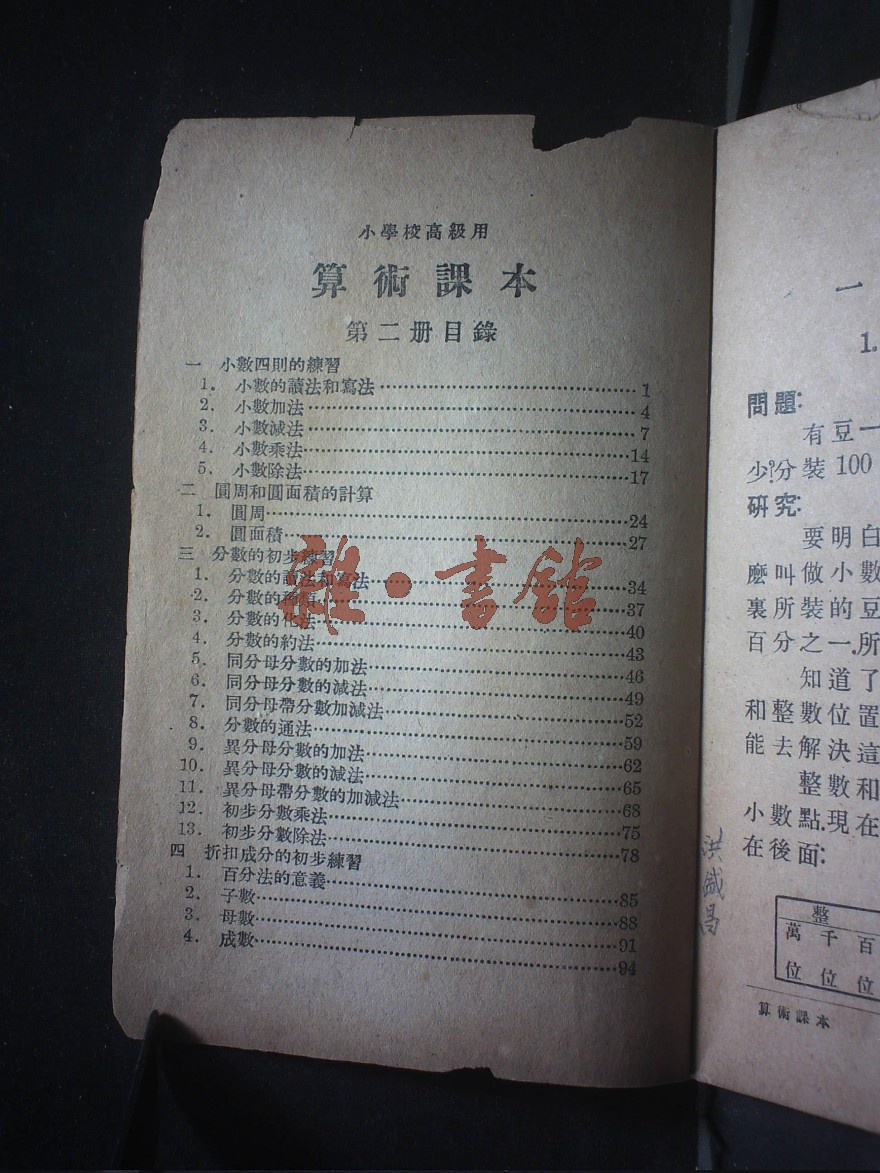 小學校高級用
算術課本
第二册目錄
一 小數四則的練習
1. 小數的讀法和寫法……1
2. 小數加法……4
3. 小數減法……7
4. 小數乘法……14
5. 小數除法……17
二 圓周和圓面積的計算
1. 圓周……24
2. 圓面積……27
三 分數的初步練習
1. 分數的讀法和寫法……34
2. 分數的種類……37
3. 分數的化法……40
4. 分數的約法……43
5. 同分母分數的加法……46
6. 同分母分數的減法……49
7. 同分母帶分數加減法……52
8. 分數的通法……59
9. 異分母分數的加法……62
10. 異分母分數的減法……65
11. 異分母帶分數的加減法……68
12. 初步分數乘法……75
13. 初步分數除法……78
四 折扣成分的初步練習
1. 百分法的意義……85
2. 子數……88
3. 母數……91
4. 成數……94
雜·書館
一
1.
問題:
有豆一
少?分裝100
研究:
要明白
麼叫做小數
裏所裝的豆
百分之一.所
知道了
和整數位置
能去解決這
整數和
小數點.現在
在後面:
整
萬 千 百
位 位 位
算術課本